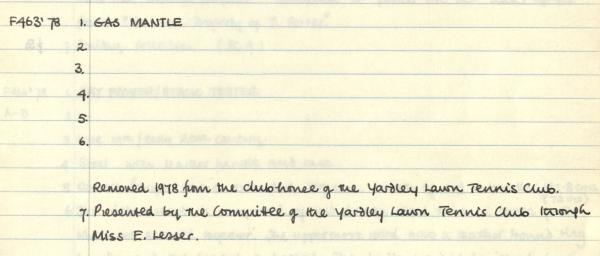 F463'78 1. GAS MANTLE
2.
3.
4.
5.
6.
Removed 1978 from the club-house of the Yardley Lawn Tennis Club.
7. Presented by the Committee of the Yardley Lawn Tennis Club through
Miss E. Lesser.